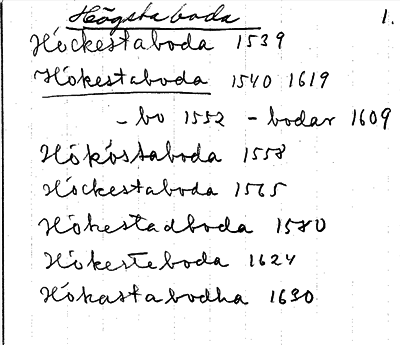 Högsta boda 1.
Höckestaboda 1539
Hökestaboda 1540 1619
- bo 1552 - bodar 1609
Hököstaboda 1558
Höckestaboda 1565
Hökestadboda 1580
Hökesteboda 1624
Hökastabodha 1630